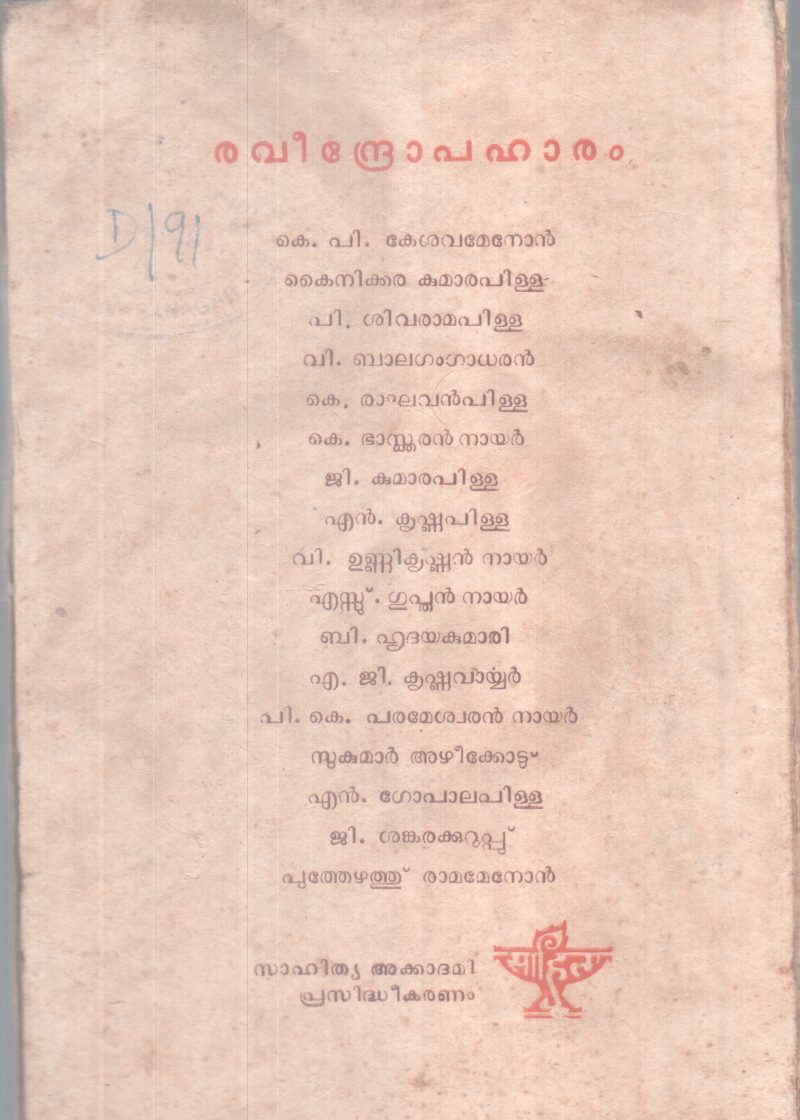 രവീന്ദ്രോപഹാരം
D/91
കെ. പി. കേശവമേനോൻ
കൈനിക്കര കുമാരപിള്ള
പി. ശിവരാമപിള്ള
വി. ബാലഗംഗാധരൻ
കെ. രാഘവൻപിള്ള
കെ. ഭാസ്ക്കരൻ നായർ
ജി. കുമാരപിള്ള
എൻ. കൃഷ്ണപിള്ള
വി. ഉണ്ണികൃഷ്ണൻ നായർ
എസ്സ്. ഗുപ്തൻ നായർ
ബി. ഹൃദയകുമാരി
എ. ജി. കൃഷ്ണവാര്യർ
പി. കെ. പരമേശ്വരൻ നായർ
സുകുമാർ അഴീക്കോട്ടു്
എൻ. ഗോപാലപിള്ള
ജി. ശങ്കരക്കുറുപ്പ്
പുത്തേഴത്ത് രാമമേനോൻ
സാഹിത്യ അക്കാദമി
പ്രസിദ്ധീകരണം
साहित्य